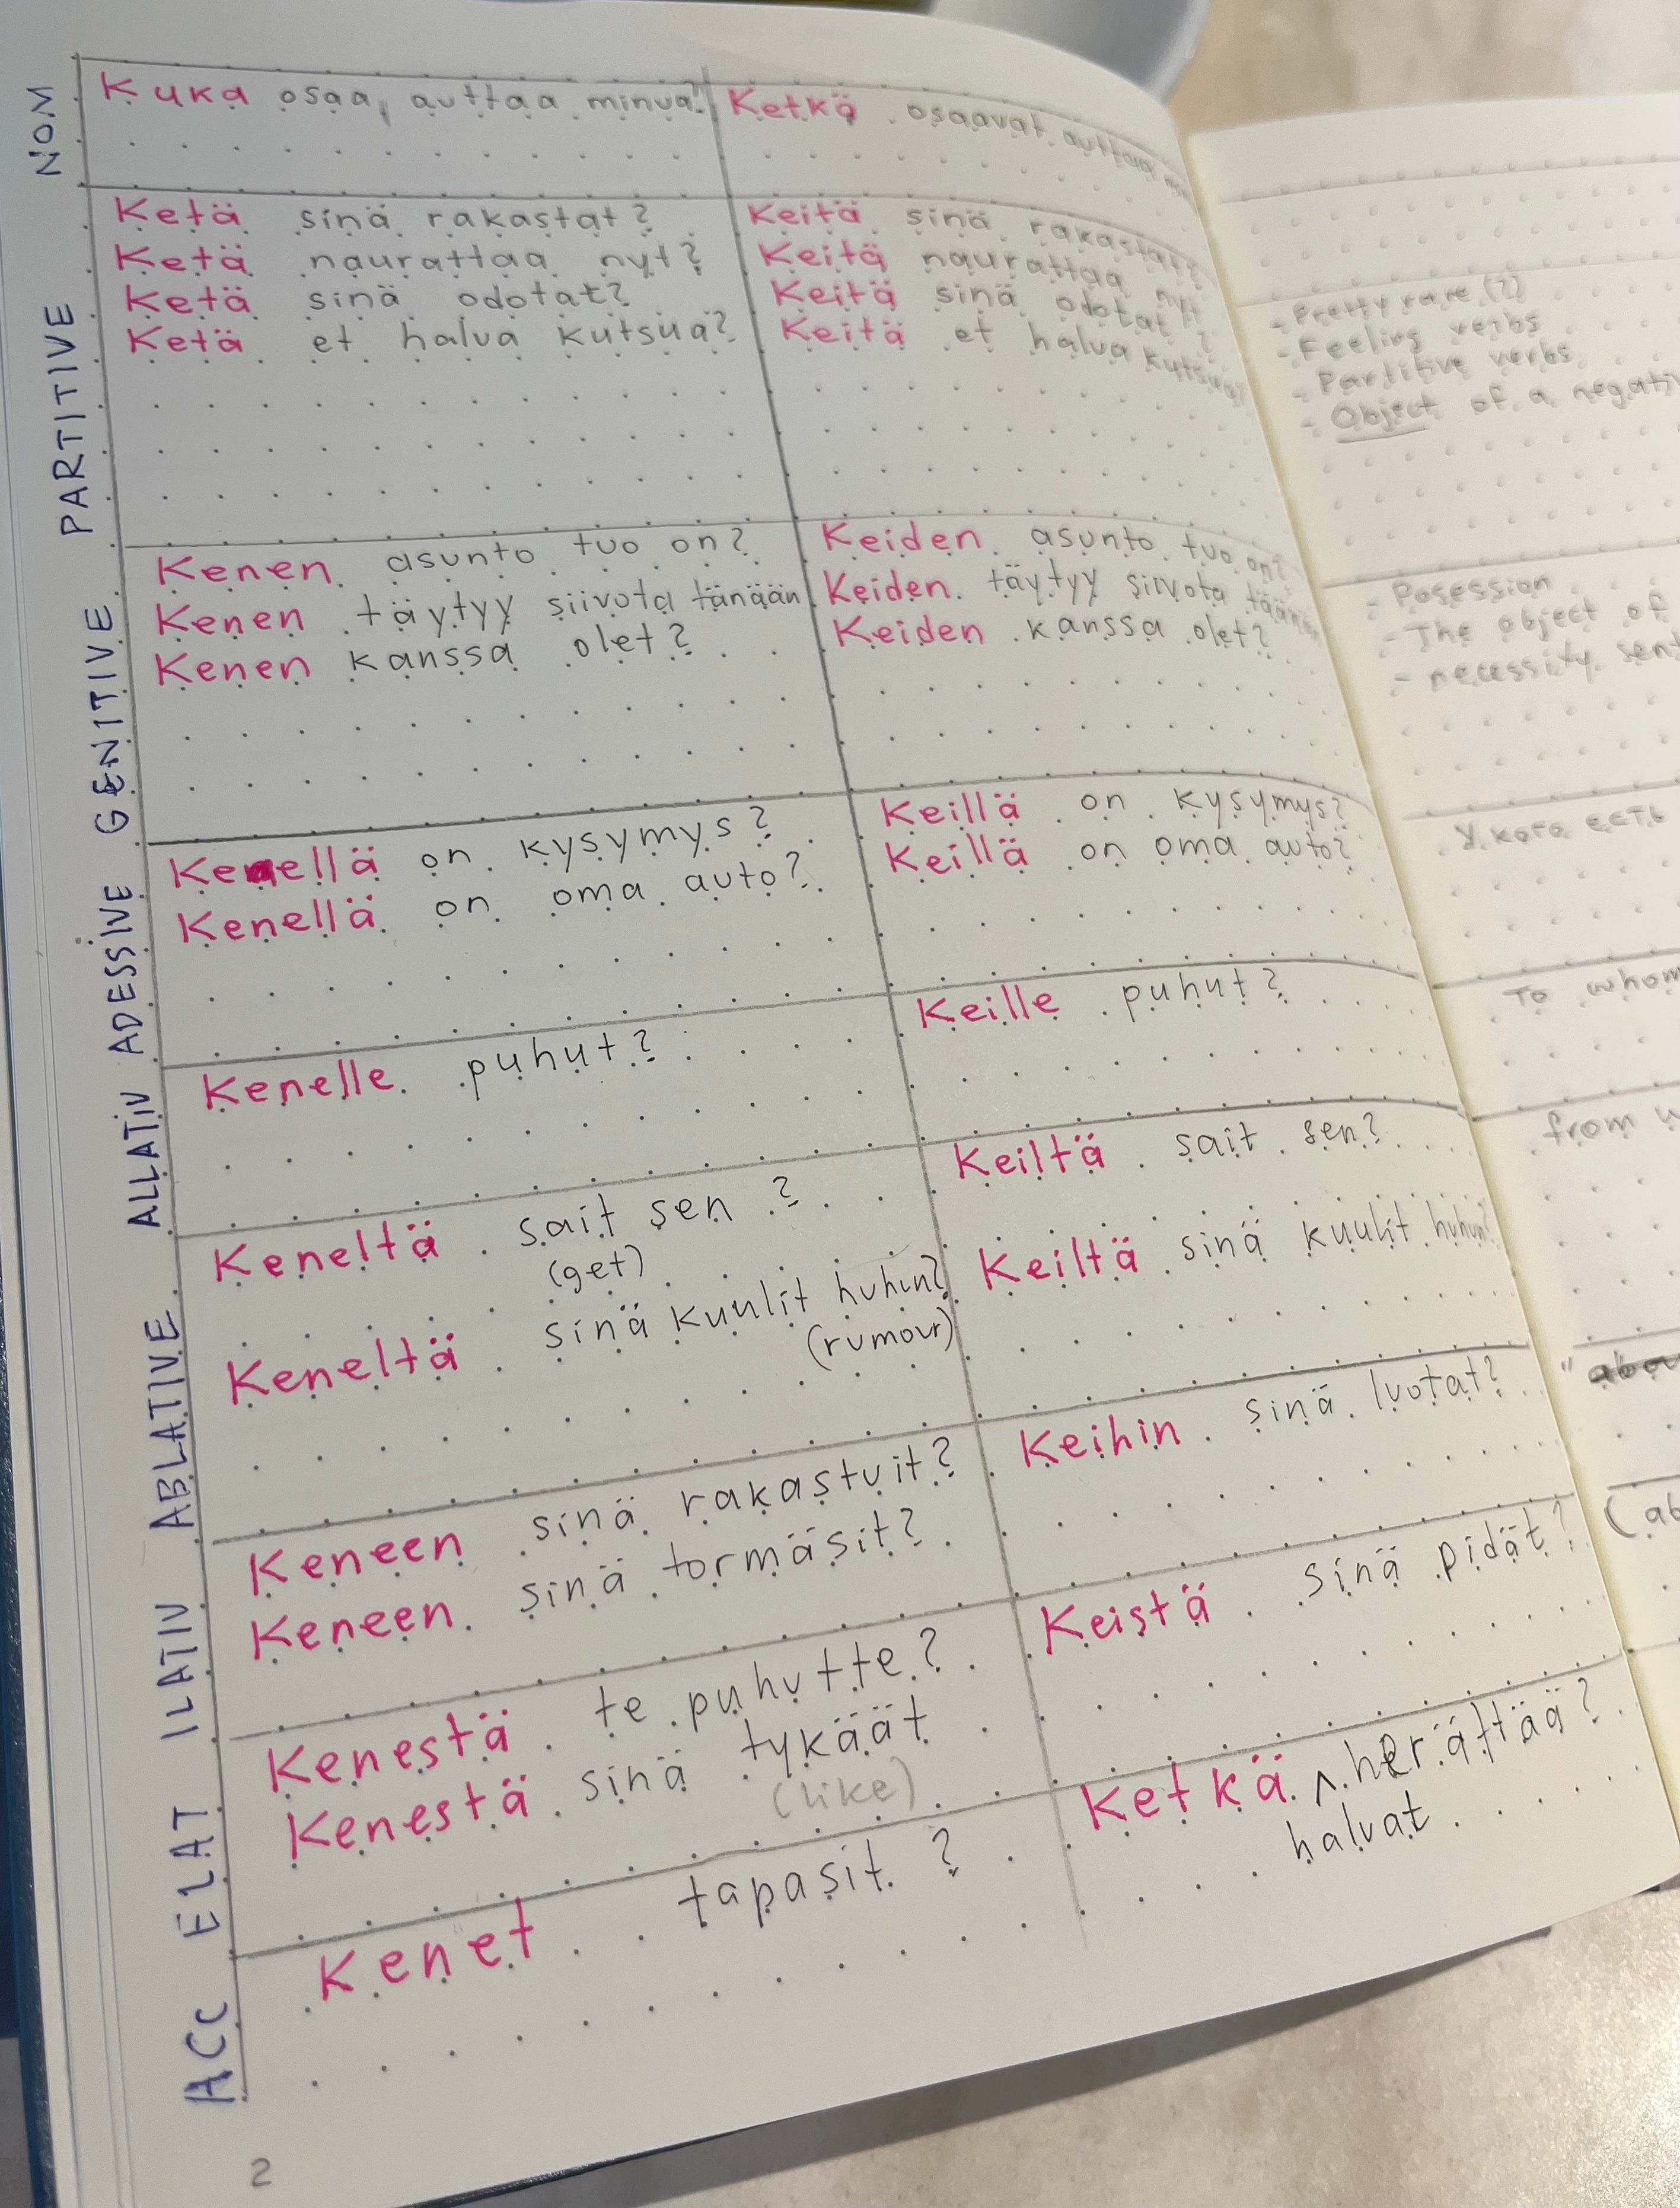 NOM
Kuka osaa auttaa minua?
Ketkä osaavat auttaa
PARTITIVE
Ketä sinä rakastat?
Ketä naurattaa nyt?
Ketä sinä odotat?
Ketä et halua kutsua?
Keitä sinä rakastat?
Keitä naurattaa nyt
Keitä sinä odotat?
Keitä et halua kutsua?
GENITIVE
Kenen asunto tuo on?
Kenen täytyy siivota tänään
Kenen kanssa olet?
Keiden asunto tuo on?
Keiden täytyy siivota
Keiden kanssa olet?
ADESSIVE
Kenellä on kysymys?
Kenellä on oma auto?
Keillä on kysymys?
Keillä on oma auto?
ALLATIV
Kenelle puhut?
Keille puhut?
ABLATIVE
Keneltä sait sen?
(get)
Keneltä sinä kuulit huhun?
(rumour)
Keiltä sait sen?
Keiltä sinä kuulit huhun?
ILATIV
Keneen sinä rakastuit?
Keneen sinä tormäsit?
Keihin sinä luotat?
ELAT
Kenestä te puhutte?
Kenestä sinä tykäät
(like)
Keistä sinä pidät?
ACC
Kenet tapasit?
Ketkä ^ herättää?
halvat
2
- Pretty rare (?)
- Feeling verbs
- Partitive verbs
- Object of a negati
- Posession
- The object of
- necessity sent
У кого есть
To whom
from w
(ab